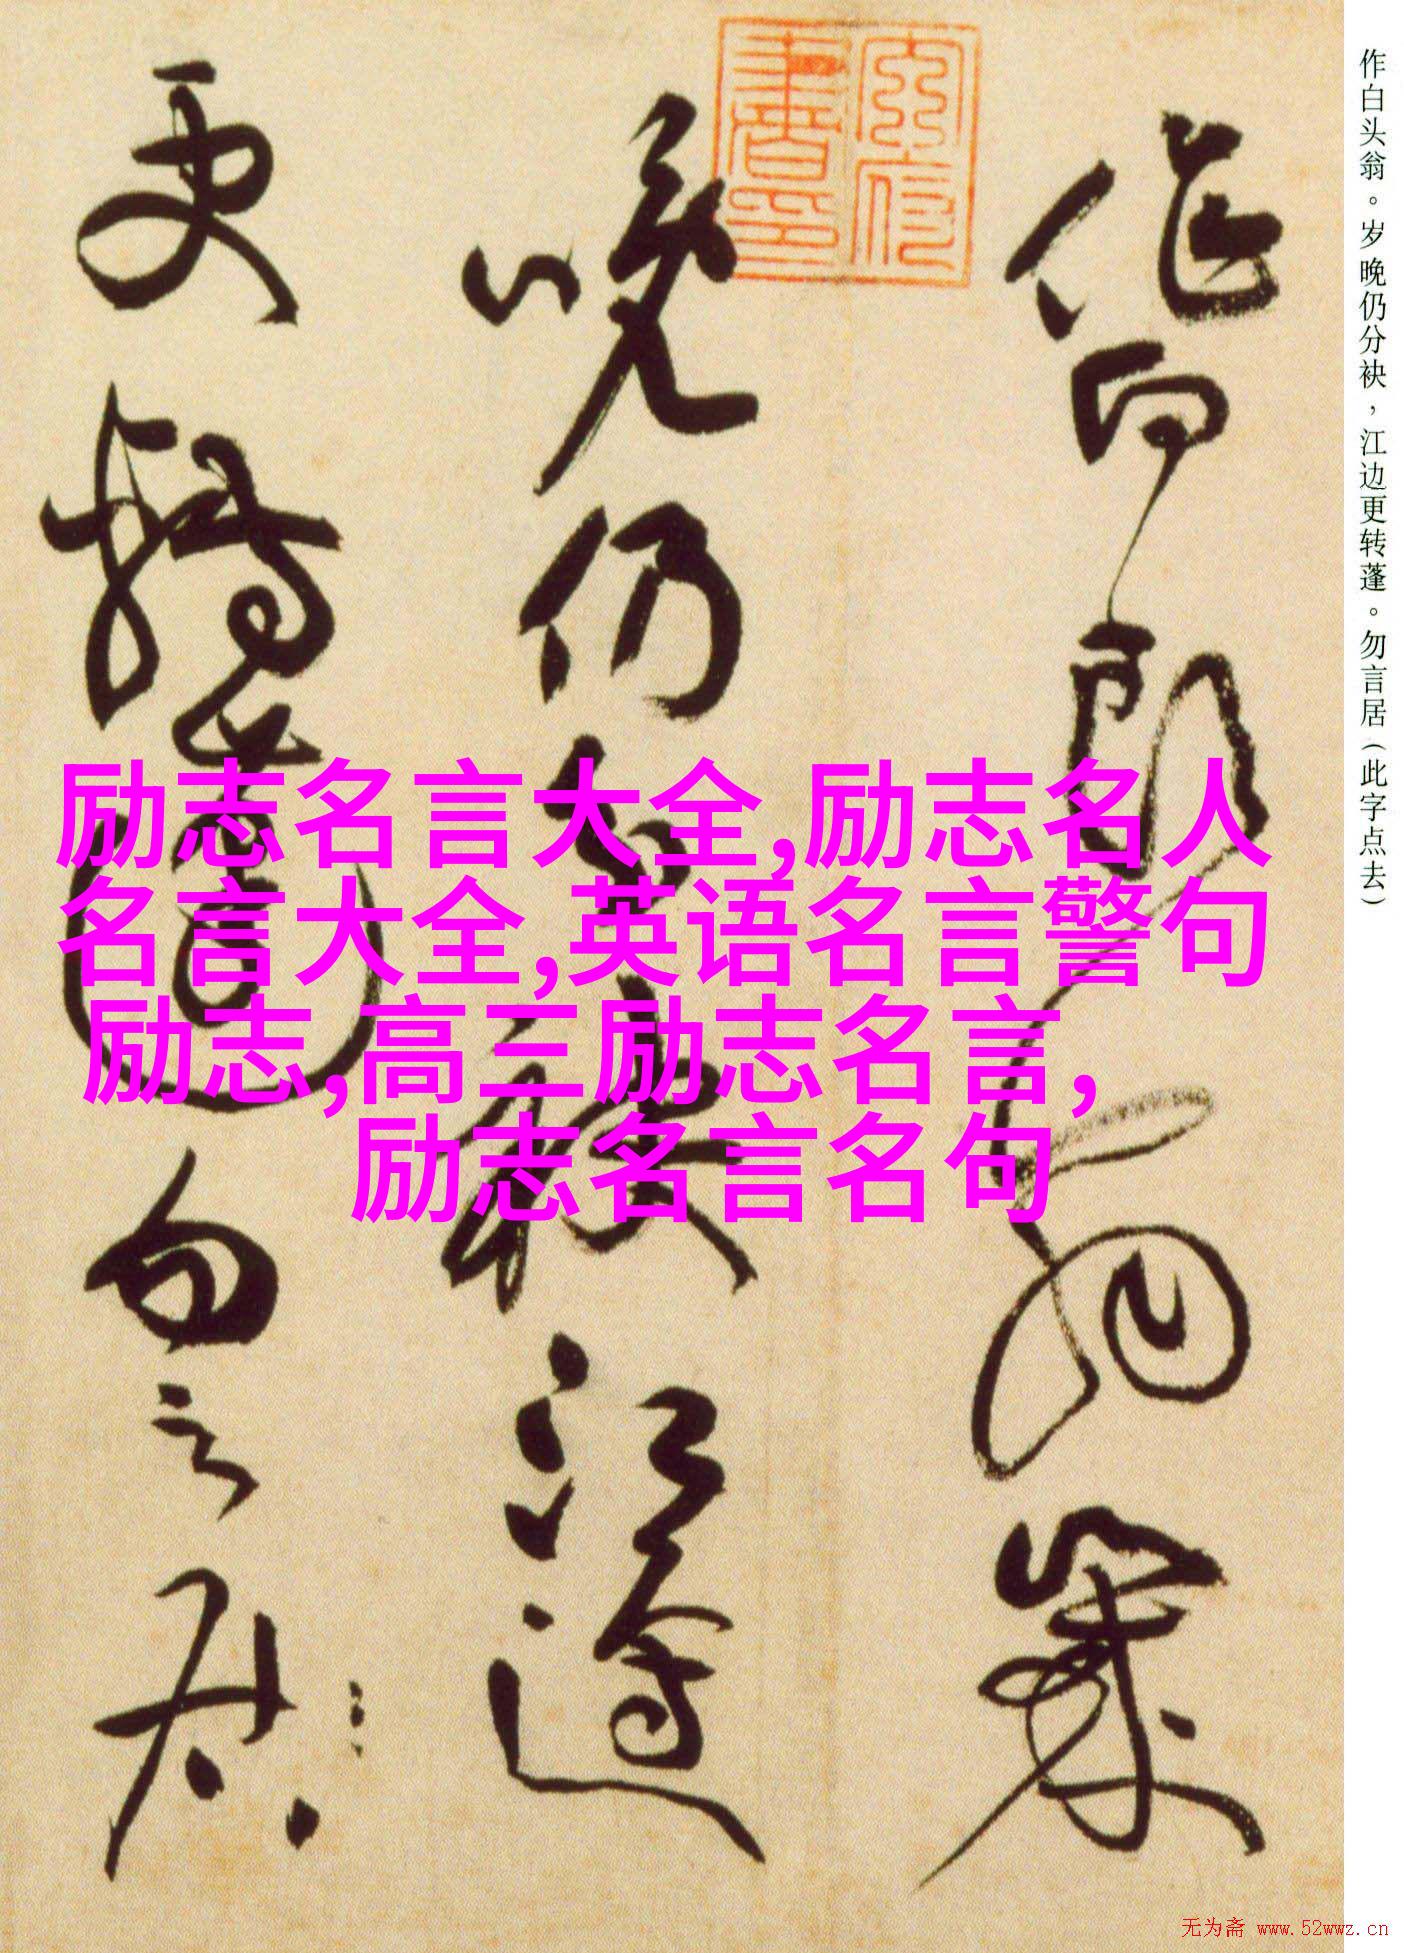 作白头翁。岁晚仍分袂，江边更转蓬。勿言居（此字点去）
作白头翁岁
晚仍分袂江边
更转蓬勿言居
励志名言大全,励志名人
名言大全,英语名言警句
励志,高三励志名言，
励志名言名句
无为斋 www.52wwz.cn